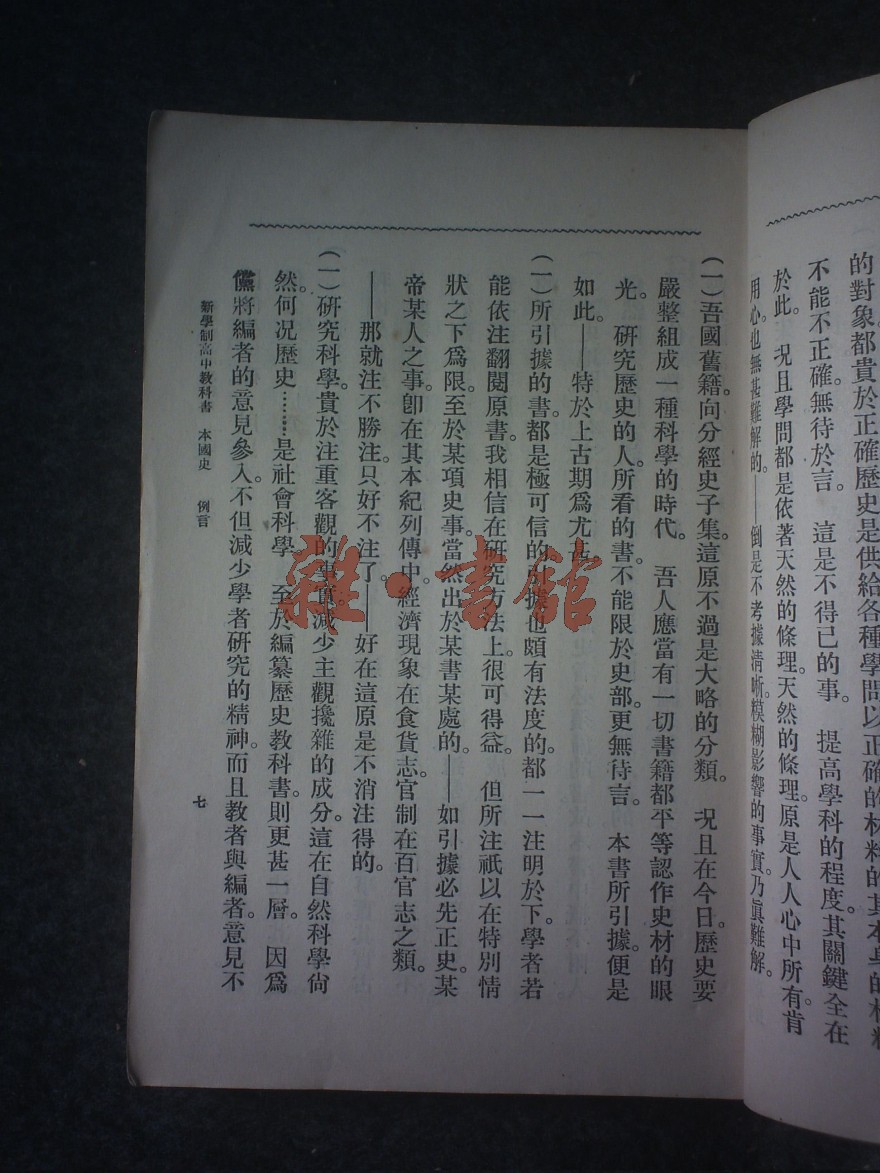 的對象都貴於正確歷史是供給各種學問以正確的材料的其本身的材料
不能不正確。無待於言。　這是不得已的事。　提高學科的程度。其關鍵全在
於此。　況且學問都是依著天然的條理。天然的條理。原是人人心中所有。肯
用心。也無甚難解的。——倒是不考據清晰。模糊影響的事實。乃眞難解。
（一）吾國舊籍。向分經史子集。這原不過是大略的分類。　況且在今日。歷史要
嚴整組成一種科學的時代。　吾人應當有一切書籍都平等認作史材的眼
光。　研究歷史的人。所看的書。不能限於史部。更無待言。　本書所引據。便是
如此。——特於上古期爲尤甚。
（一）所引據的書。都是極可信的。引據也頗有法度的。都一一注明於下。學者若
能依注翻閱原書。我相信在硏究方法上。很可得益。　但所注祇以在特別情
狀之下爲限。至於某項史事。當然出於某書某處的。——如引據必先正史。某
帝某人之事。卽在其本紀列傳中。經濟現象在食貨志。官制在百官志之類。
——那就注不勝注。只好不注了。——好在這原是不消注得的。
（一）硏究科學。貴於注重客觀的事實。減少主觀攙雜的成分。這在自然科學尙
然。何况歷史……是社會科學　至於編纂歷史教科書。則更甚一層。　因爲
儻將編者的意見參入。不但減少學者硏究的精神。而且教者與編者。意見不
新學制高中教科書　本國史　例言
七
雜·書館